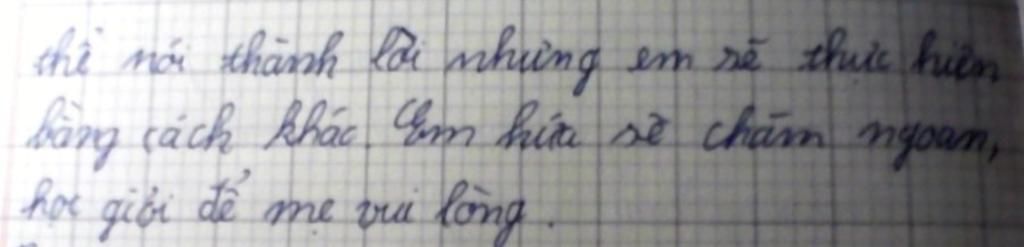 thể nói thành lời nhưng em sẽ thực hiện
bằng cách khác. Em hứa sẽ chăm ngoan,
học giỏi để mẹ vui lòng.